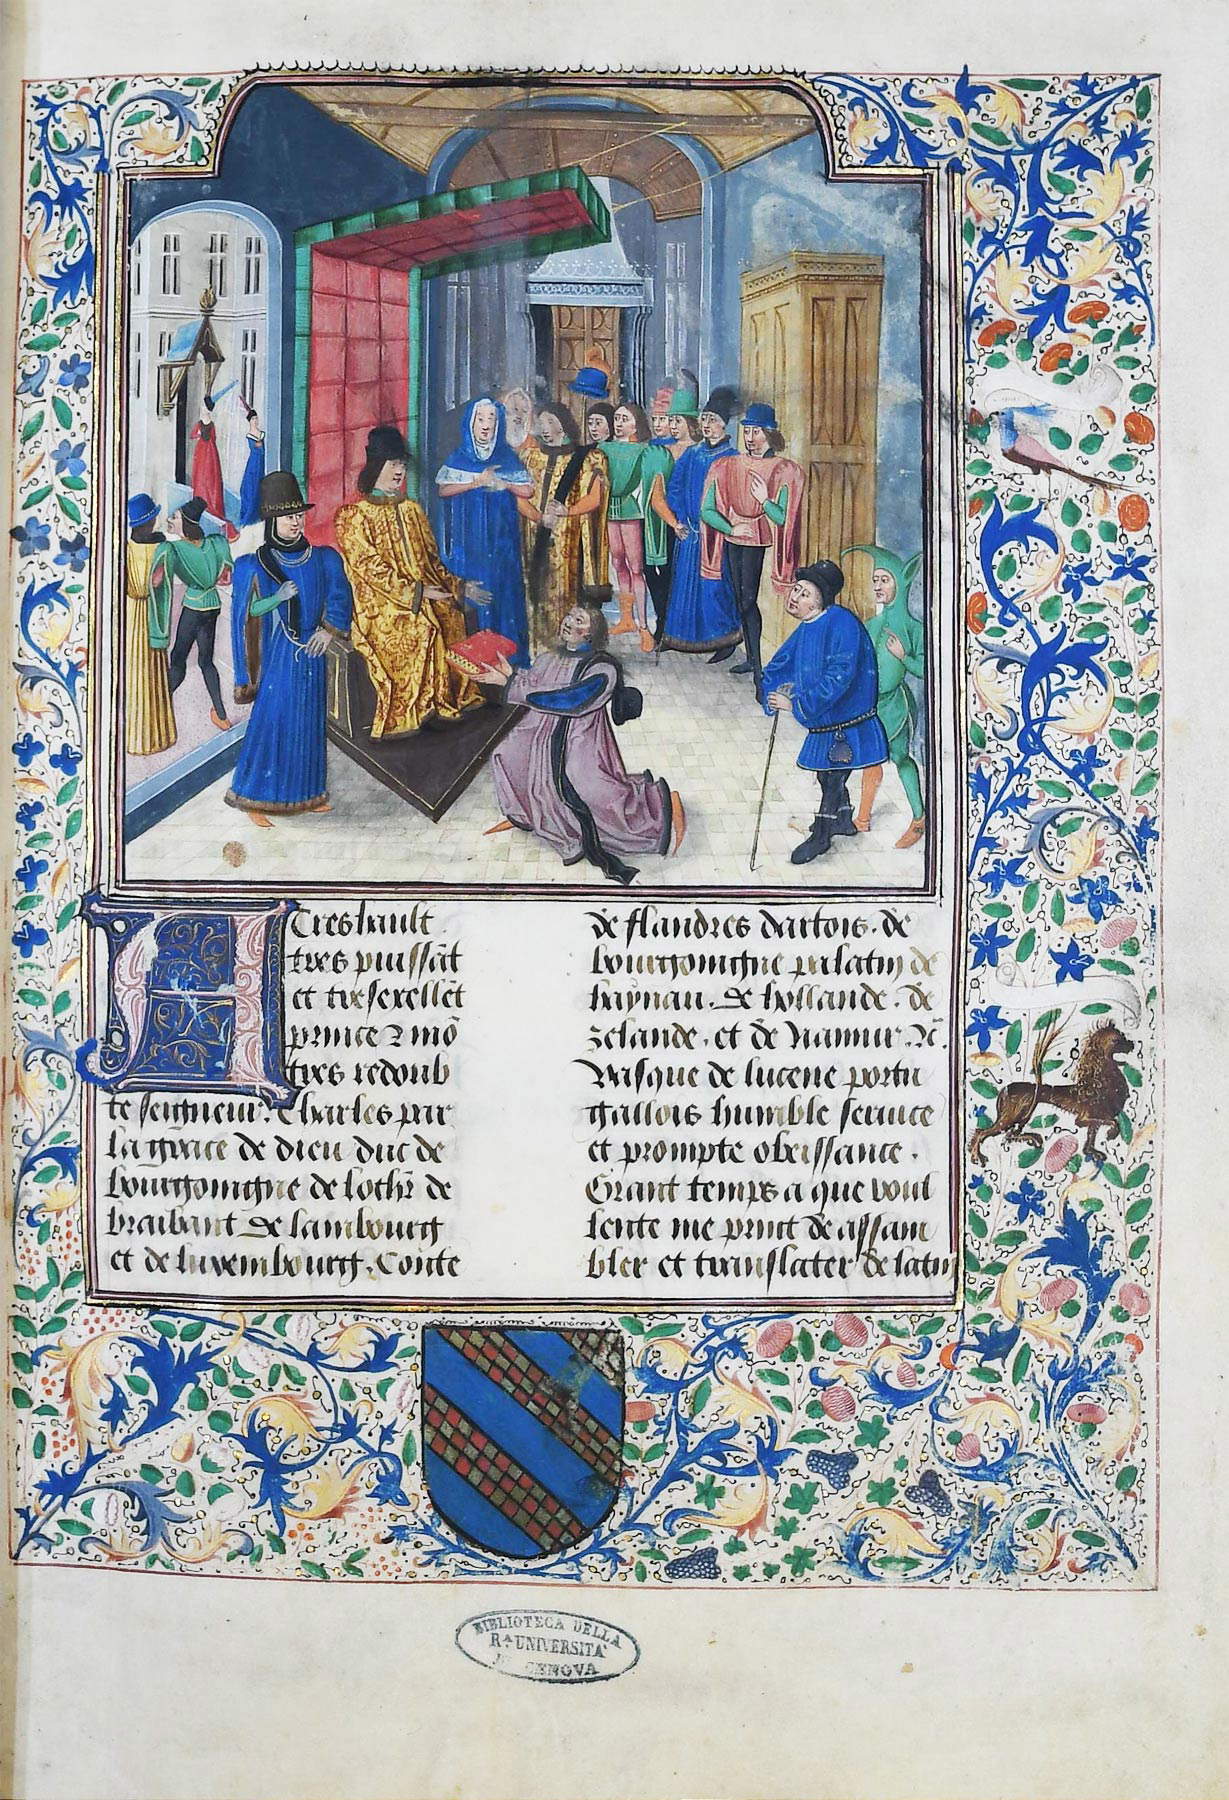 A Tres hault
tres puissāt
et tresexellēt
prince & mō
tres redoub
te seigneur. Charles par
la grace de dieu duc de
bourgoingne de lothr̄ de
braibant de lambourg
et de luxembourg. Conte
de flandres dartois. de
bourgoingne palatin de
haynau. de hollande. de
zelande. et de namur. &c̄.
Vasque de lucene portu
gallois humble seruice
et prompte obeissance.
Grant temps a que voul
lente me print de assam
bler et translater de latin
BIBLIOTECA DELLA
Rᴬ UNIVERSITA'
DI GENOVA